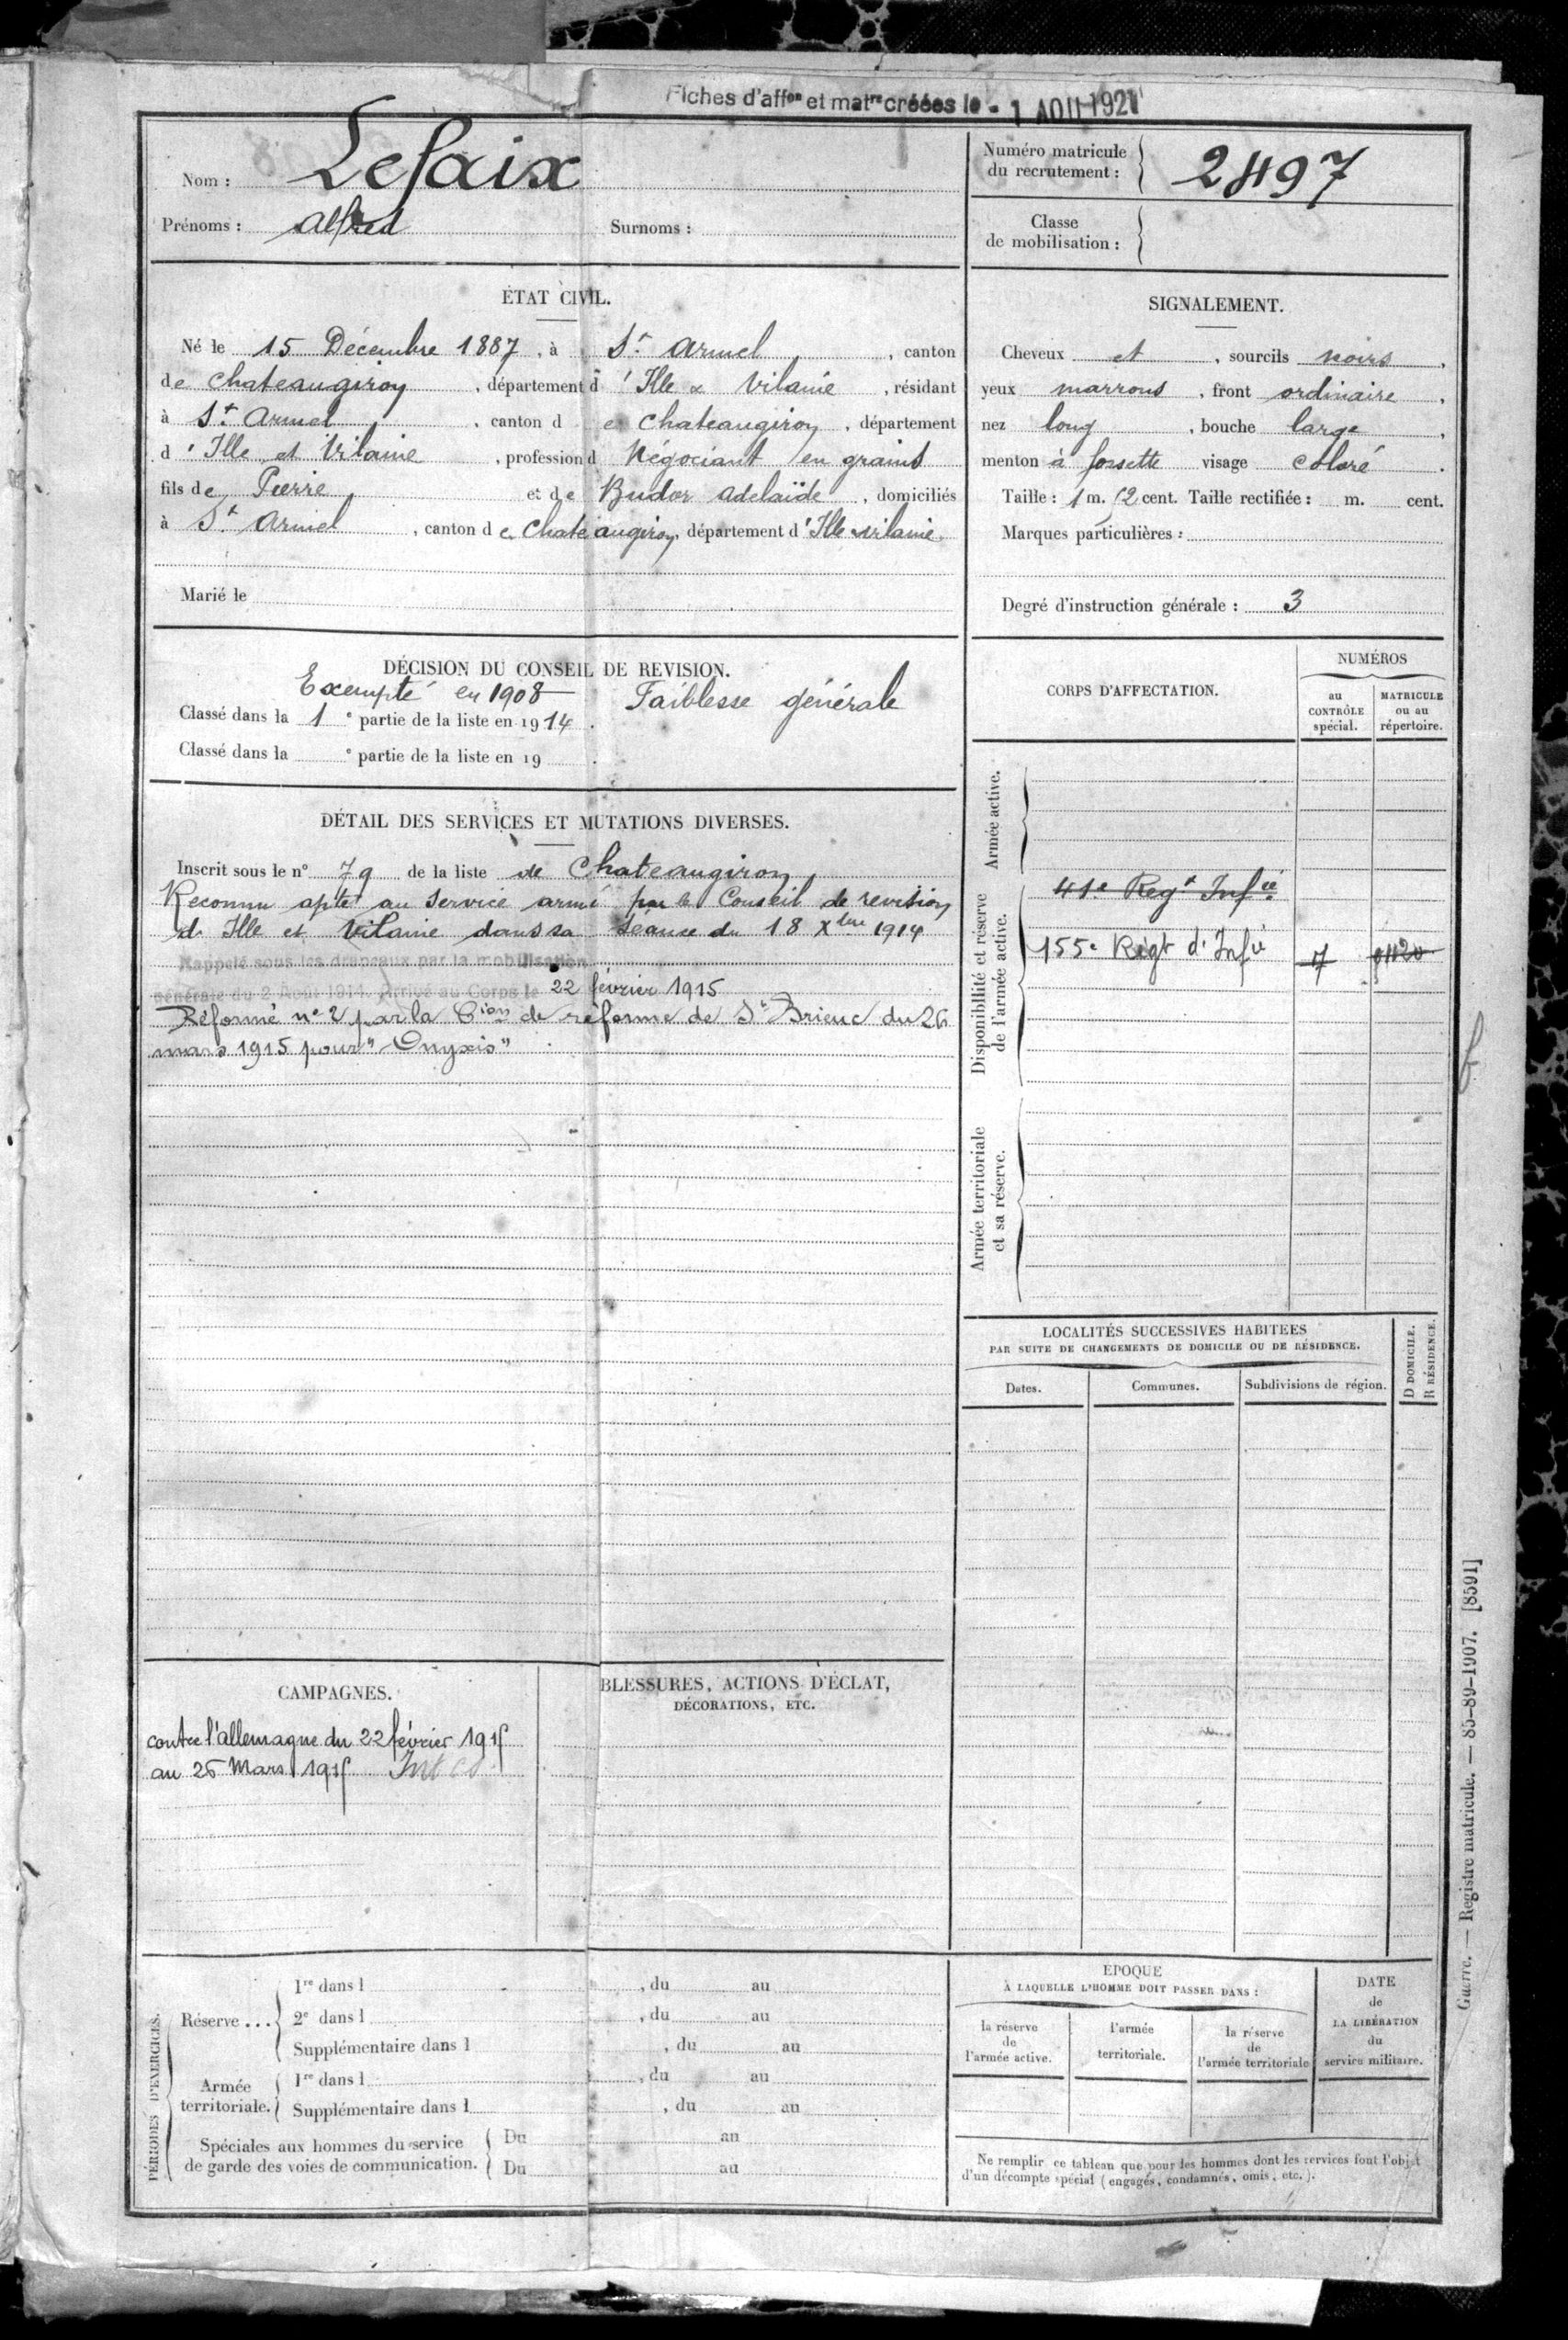 Fiches d'affon et matre créées le - 1 AOU 1921
Nom : Lefaix
Prénoms : Alfred Surnoms :
Numéro matricule du recrutement : 2497
Classe de mobilisation :
ÉTAT CIVIL.
Né le 15 Décembre 1887, à St Armel, canton
de Chateaugiron, département d'Ille & Vilaine, résidant
à St Armel, canton de Chateaugiron, département
d'Ille et Vilaine, profession d Négociant en grains
fils de Pierre et de Budor Adelaïde, domiciliés
à St Armel, canton de Chateaugiron, département d'Ille & Vilaine.
Marié le
SIGNALEMENT.
Cheveux et, sourcils noirs,
yeux marrons, front ordinaire,
nez long, bouche large,
menton à fossette visage coloré.
Taille : 1 m. 52 cent. Taille rectifiée : m. cent.
Marques particulières :
Degré d'instruction générale : 3
DÉCISION DU CONSEIL DE REVISION.
Exempté en 1908 Faiblesse générale
Classé dans la 1e partie de la liste en 1914.
Classé dans la e partie de la liste en 19 .
DÉTAIL DES SERVICES ET MUTATIONS DIVERSES.
Inscrit sous le n° 79 de la liste de Chateaugiron
Reconnu apte au service armé par le Conseil de revision
d'Ille et Vilaine dans sa séance du 18 Xbre 1914
Rappelé sous les drapeaux par la mobilisation
générale du 2 Août 1914. Arrivé au Corps le 22 février 1915
Réformé n° 2 par la Cion de réforme de St Brieuc du 26
mars 1915 pour "Onyxis"
CORPS D'AFFECTATION.
NUMÉROS
au CONTRÔLE spécial.
MATRICULE ou au répertoire.
Armée active.
Disponibilité et réserve de l'armée active.
41e Regt Infie
155e Régt d'Infie 17
Armée territoriale et sa réserve.
LOCALITÉS SUCCESSIVES HABITÉES
PAR SUITE DE CHANGEMENTS DE DOMICILE OU DE RÉSIDENCE.
Dates. Communes. Subdivisions de région.
D DOMICILE.
R RÉSIDENCE.
CAMPAGNES.
contre l'allemagne du 22 février 1915
au 26 Mars 1915 Int
BLESSURES, ACTIONS D'ÉCLAT,
DÉCORATIONS, ETC.
PÉRIODES D'EXERCICES.
Réserve ...
1re dans l , du au
2e dans l , du au
Supplémentaire dans l , du au
Armée territoriale.
1re dans l , du au
Supplémentaire dans l , du au
Spéciales aux hommes du service de garde des voies de communication.
Du au
Du au
ÉPOQUE
À LAQUELLE L'HOMME DOIT PASSER DANS :
la réserve de l'armée active.
l'armée territoriale.
la réserve de l'armée territoriale
DATE de LA LIBÉRATION du service militaire.
Ne remplir ce tableau que pour les hommes dont les services font l'objet
d'un décompte spécial (engagés, condamnés, omis, etc.).
Guerre. — Registre matricule. — 85-89-1907. [8591]